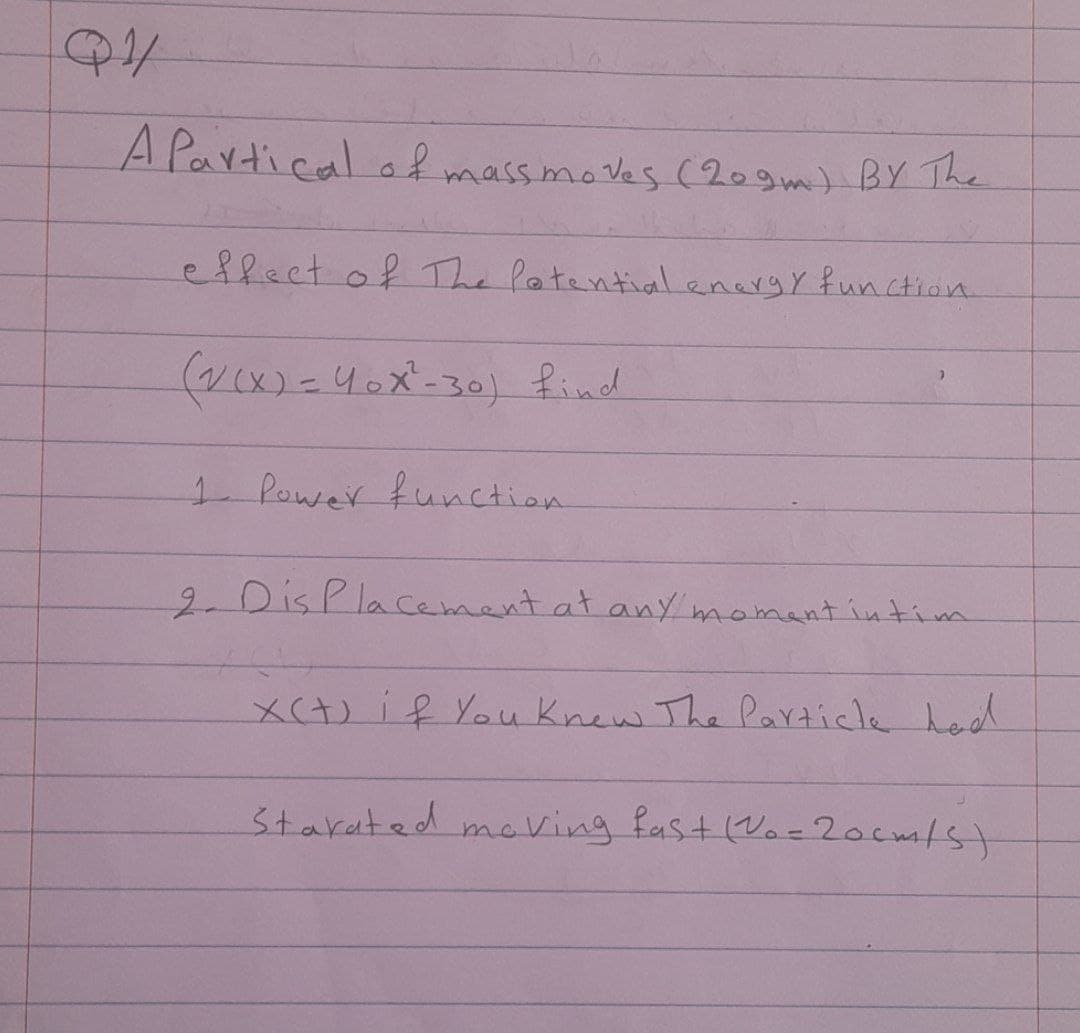 Q1/
A Partical of mass moves (20gm) BY The
effect of The Potential energy function
(V(x) = 40x²-30) find
1- Power function
2- Displacement at any moment in tim
x(t) if You Knew The Particle had
starated moving fast (V₀ = 20cm/s)